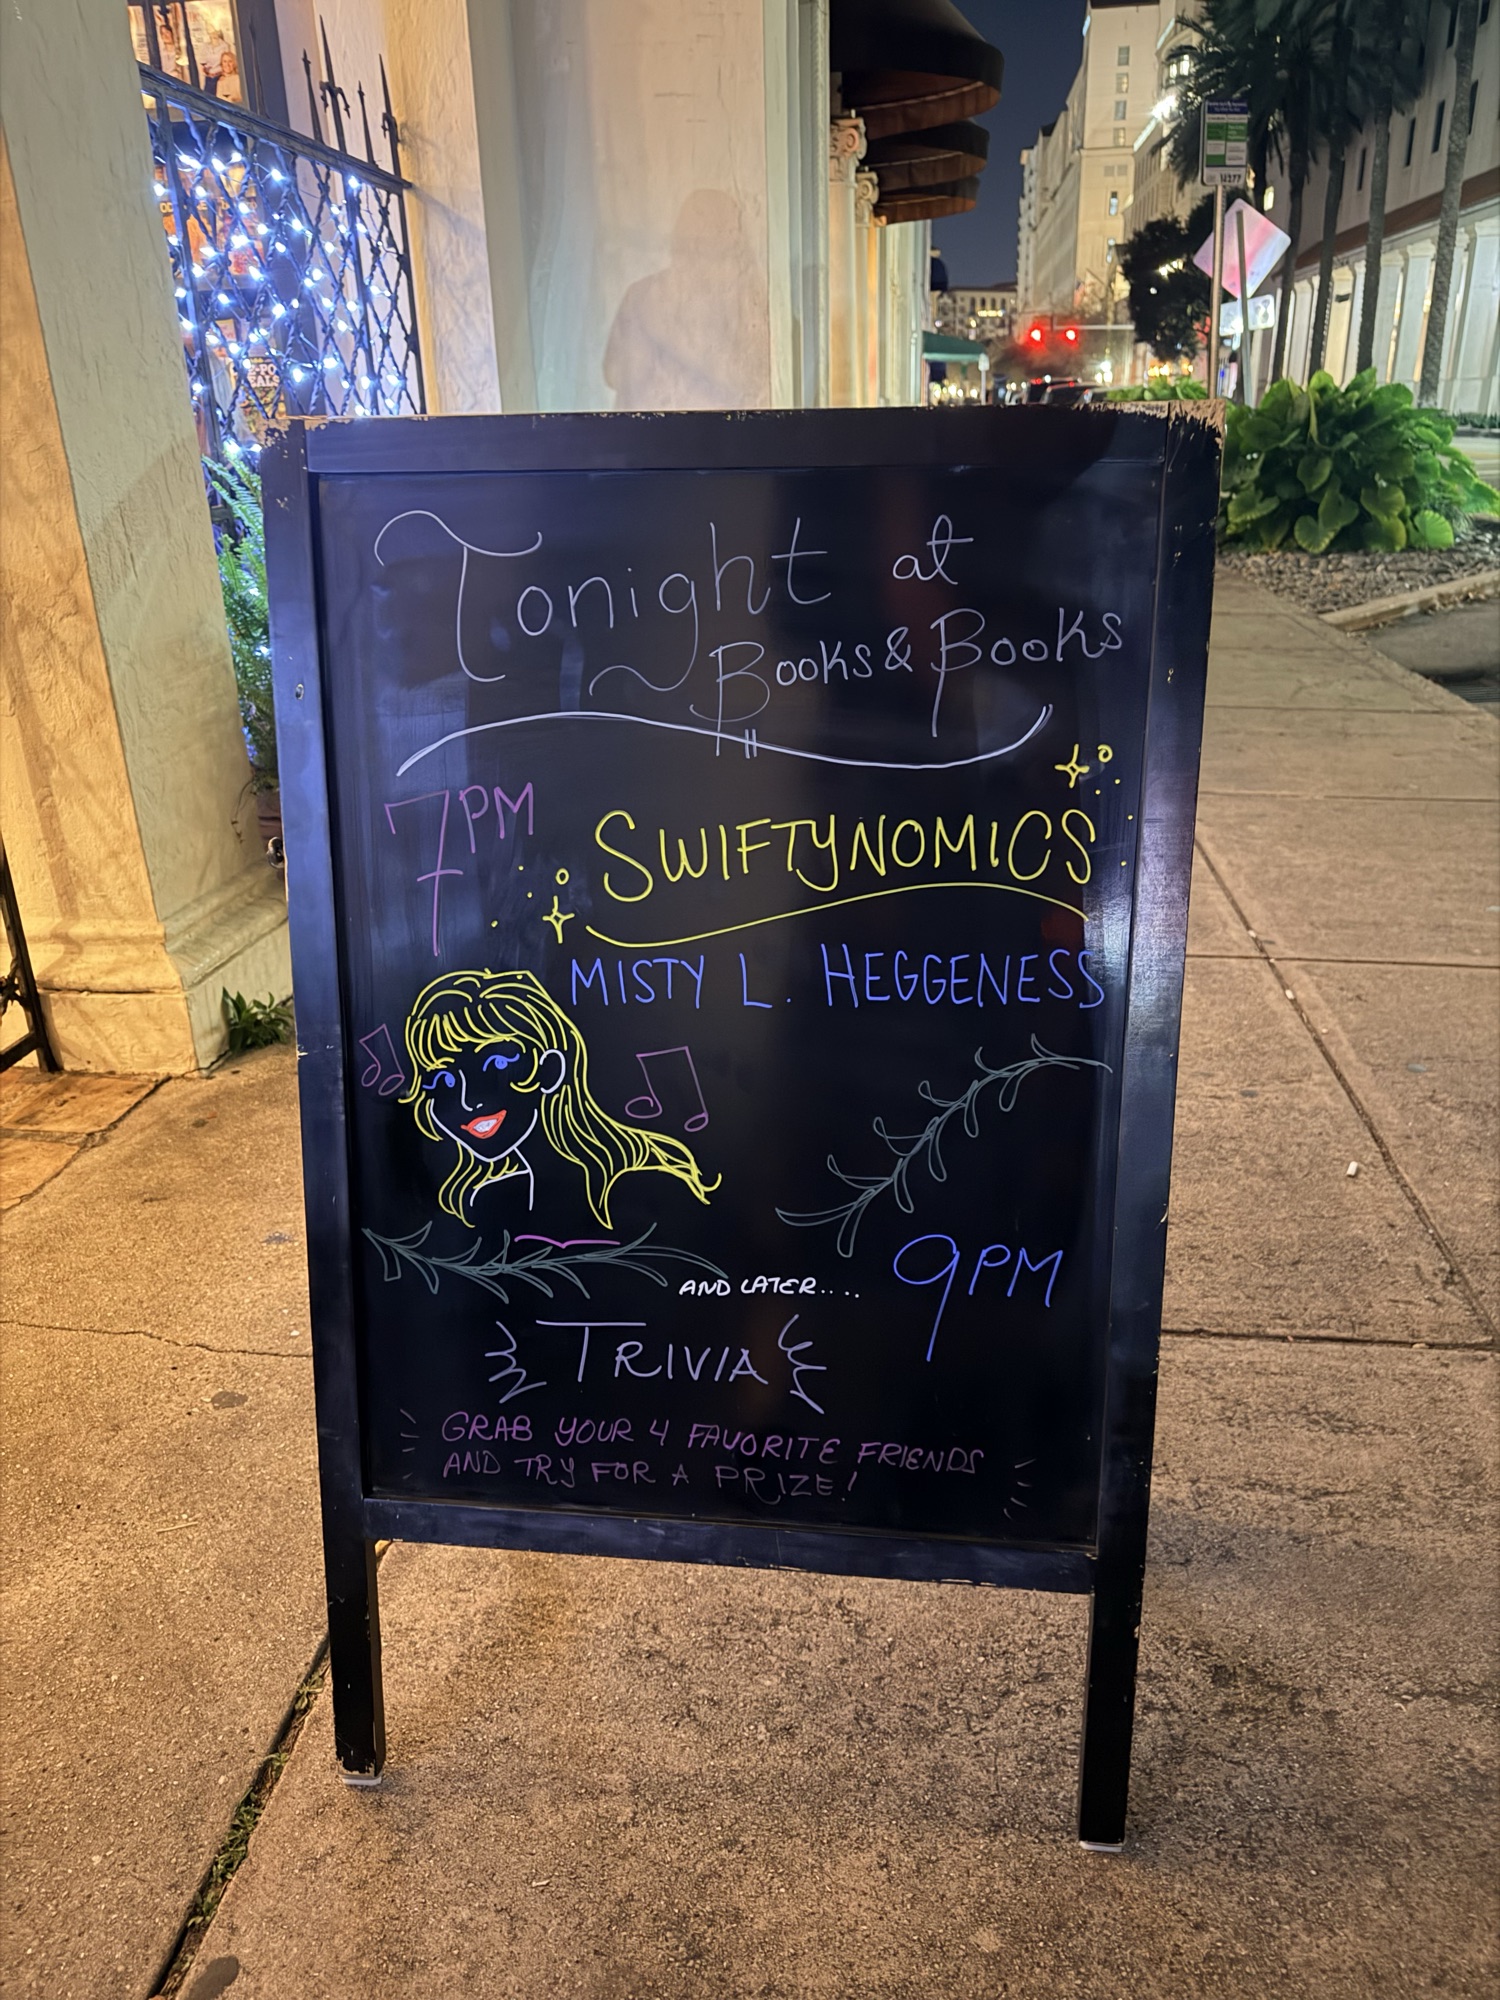 Tonight at
Books & Books
7PM
SWIFTYNOMICS
MISTY L. HEGGENESS
AND LATER....
9PM
TRIVIA
GRAB YOUR 4 FAVORITE FRIENDS
AND TRY FOR A PRIZE!